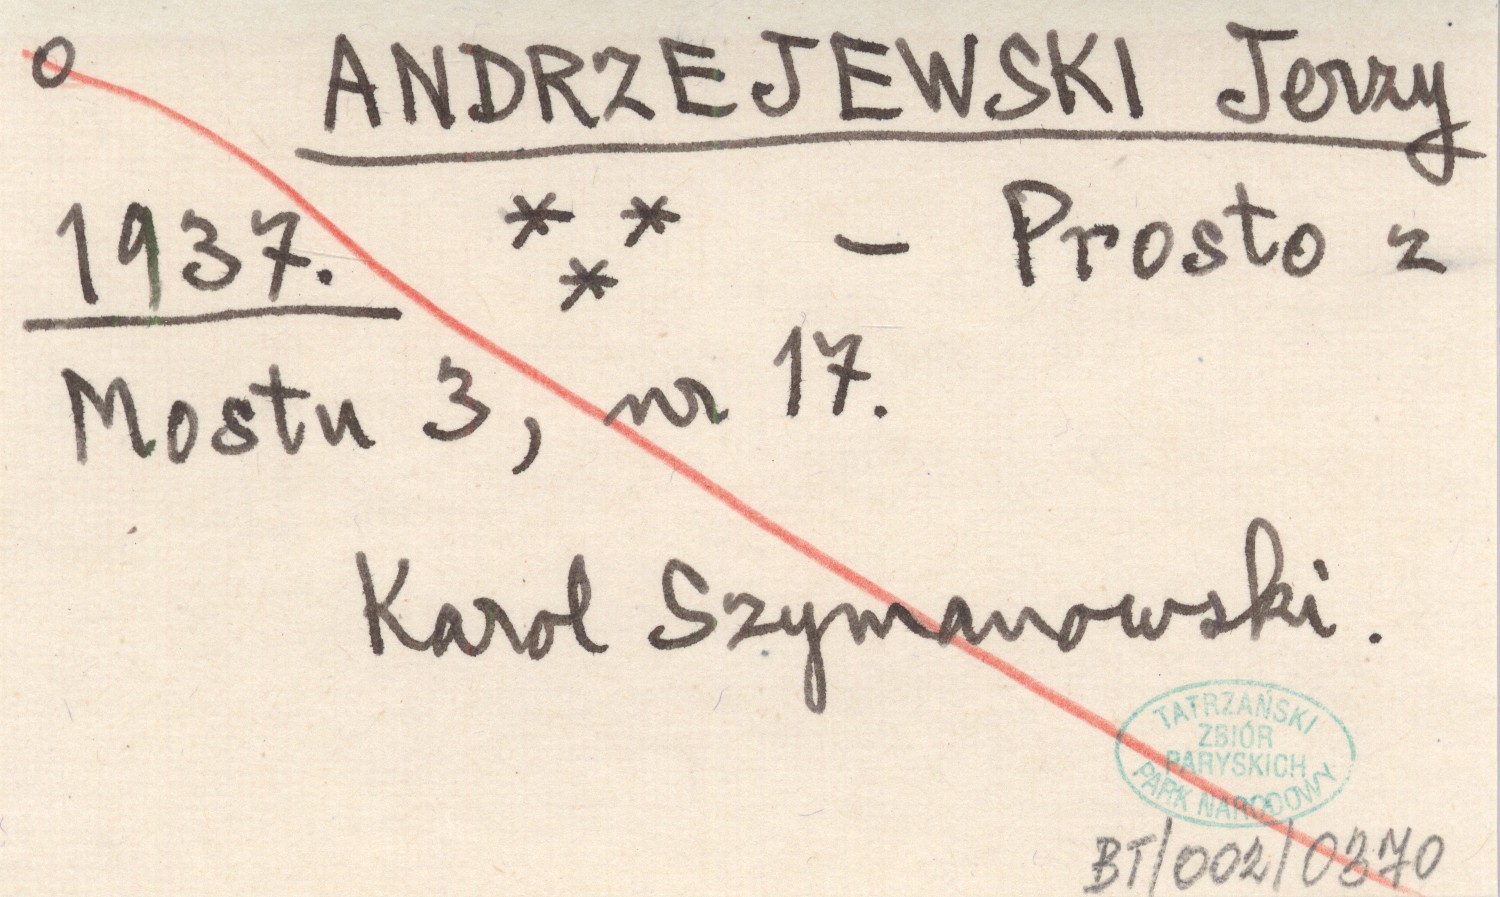 o ANDRZEJEWSKI Jerzy
1937. * * * – Prosto z
Mostu 3, nr 17.
Karol Szymanowski.
TATRZAŃSKI
ZBIÓR
PARYSKICH
PARK NARODOWY
BT/002/0370